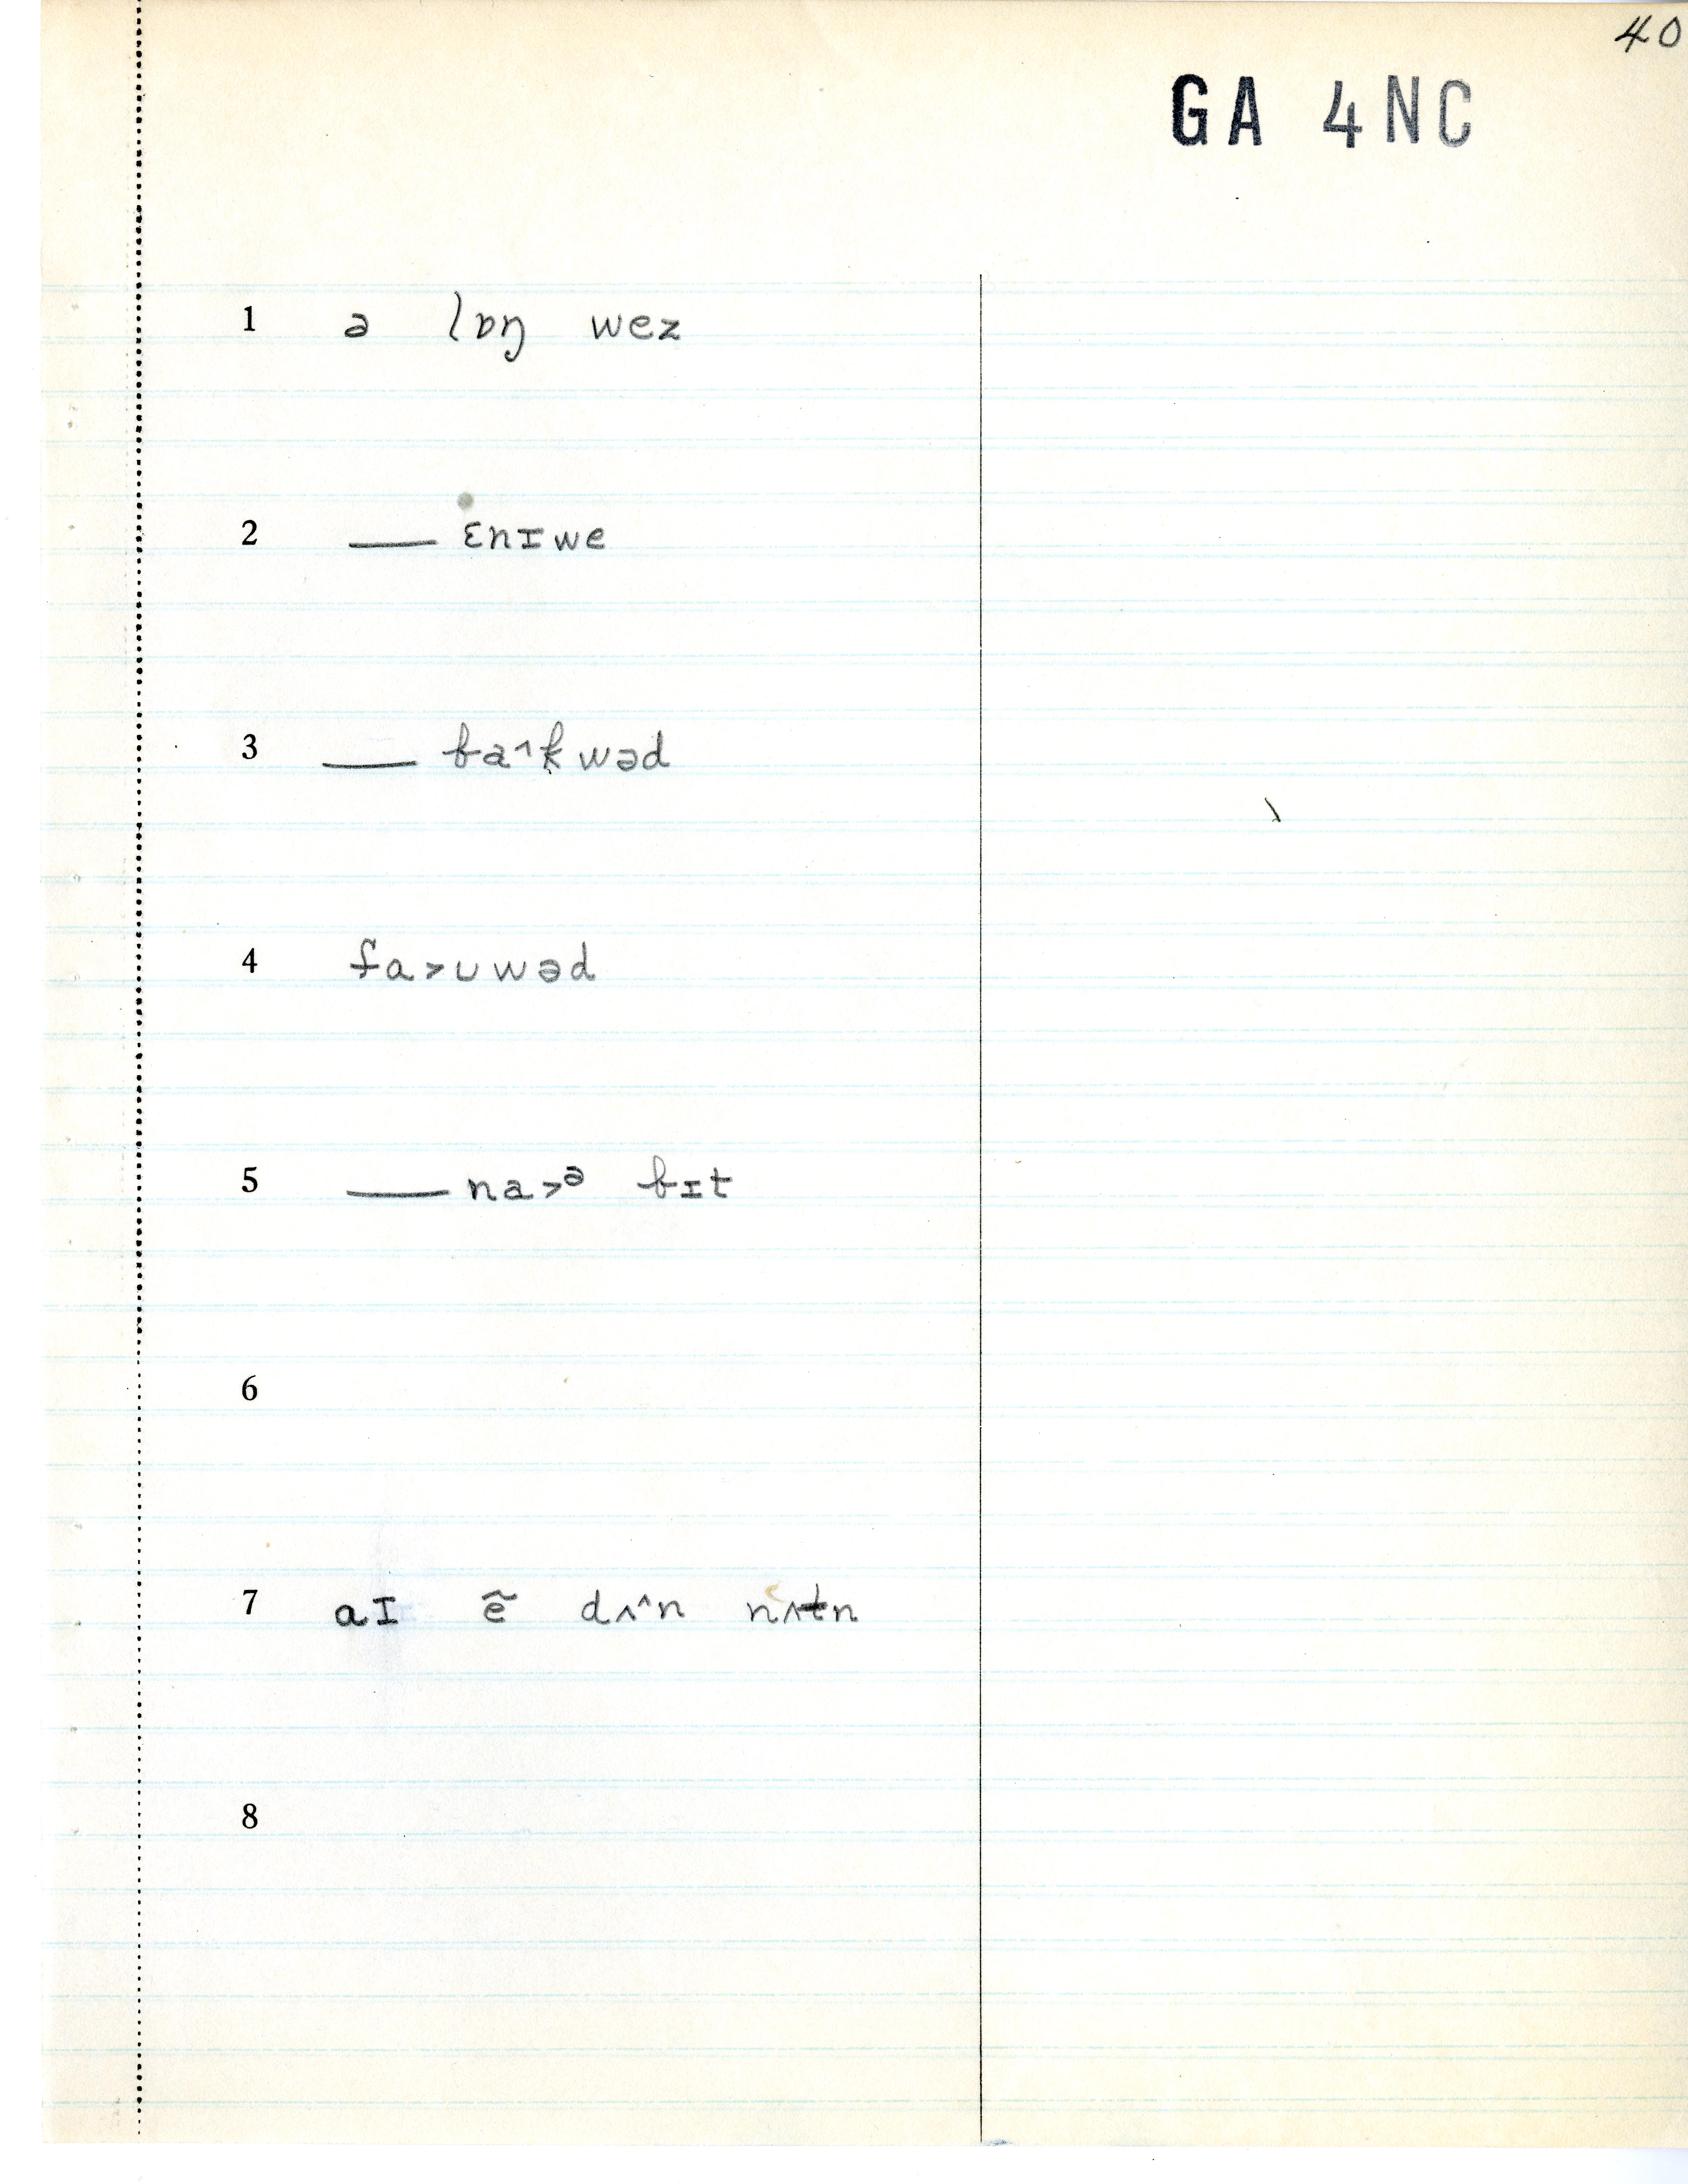 40
GA 4NC
1 ə lɒŋ wez
2 — ɛnɪwe
3 — ba^kwəd
4 fa>ʊwəd
5 — na>ᵊ bɪt
6
7 aɪ ẽ dʌ^n nʌtn
8